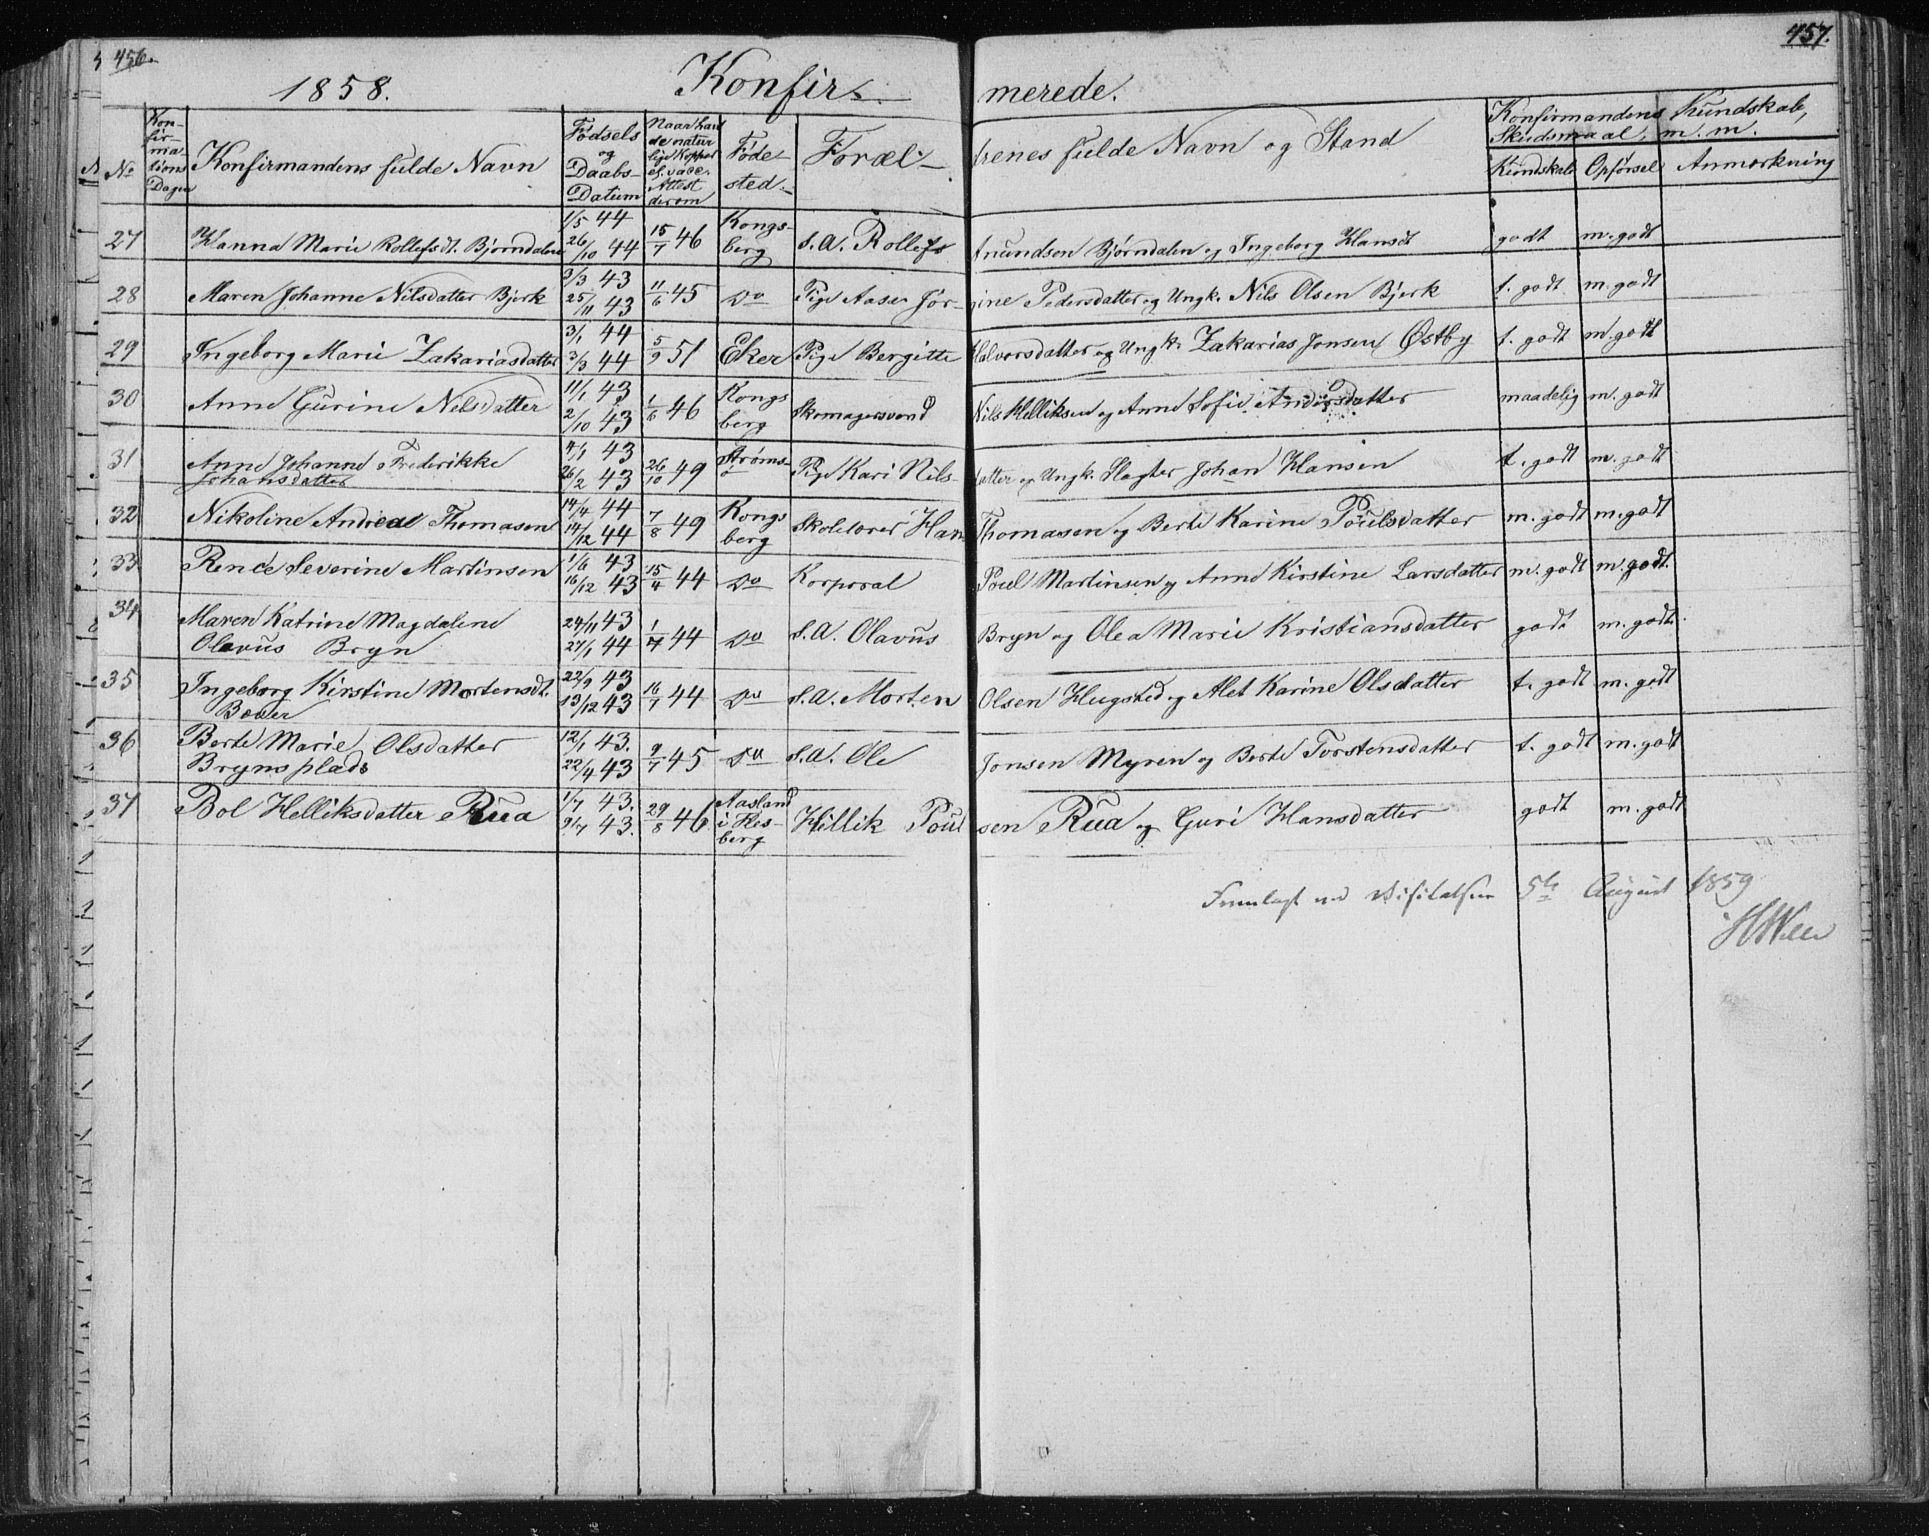 456.
457.
1858. Konfir- merede.
No
Kon-
fir-
ma-
tions
Dagen
Konfirmandens fulde Navn
Fødsels
og
Daabs-
Datum
Naar havt
de natur
lige Kopper
el. vacc.
Attest
derom
Føde-
sted.
Foræl- drenes fulde Navn og Stand
Konfirmandens Kundskab,
Skudsmaal, m. m.
Kundskab Opførsel Anmærkning
27 Hanna Marie Rollefsdt. Bjørndalen 1/5 44 26/10 44 15/7 46 Kongs-
berg S. A. Rollef Anundsen Bjørndalen og Ingeborg Hansdt godt m. godt
28 Maren Johanne Nilsdatter Bjerk 3/3 43 25/11 43 11/6 45 Do Pige Aase Jør- gine Pedersdatter og Ungk. Nils Olsen Bjerk t. godt m. godt
29 Ingeborg Marie Zakariasdatter 3/1 44 3/3 44 5/9 51 Eker Pige Bergitte Halvorsdatter og Ungk. Zakarias Jonsen Østby t. godt m. godt
30 Anne Gurine Nilsdatter 11/1 43 2/10 43 1/6 46 Kongs
berg Skomagersvend Nils Helliksen og Anne Sofie Andersdatter maadelig m. godt
31 Anne Johanne Frederikke
Johansdatter 4/1 43 26/2 43 26/10 49 Strøms-
ø Pige Kari Nils- datter og Ungk. Slagter Johan Hansen t. godt m. godt
32 Nikoline Andrea Thomasen 14/4 44 14/12 44 7/8 49 Kongs
berg Skolelærer Hans Thomasen og Berte Karine Poulsdatter m. godt m. godt
33 Severine Martinsen 1/6 43 16/12 43 15/4 44 Do Korporal Poul Martinsen og Anne Kirstine Larsdatter m. godt m. godt.
34 Maren Katrine Magdalene
Olavus Bryn 24/11 43 27/1 44 44 Do S. A. Olavus Bryn og Olea Marie Kristiansdatter godt m. godt.
35 Ingeborg Kirstine Mortensdt.
22/9 43 13/12 43 16/7 44 Do S. A. Morten Olsen Hugsted og Alet Karine Olsdatter t. godt m. godt
36 Berte Marie Olsdatter
Brynsplads 12/1 43. 22/4 43 9/7 45 Do S. A. Ole Jonsen Myren og Berte Torstensdatter t. godt m. godt
37 Bol Helliksdatter Rua 1/7 43. 9/7 43. 29/8 46 Aasland
i Hes-
berg Hellik Poul sen Rua og Guri Hansdatter godt m. godt
Fremlagt ved Visitatsen 5te August 1859